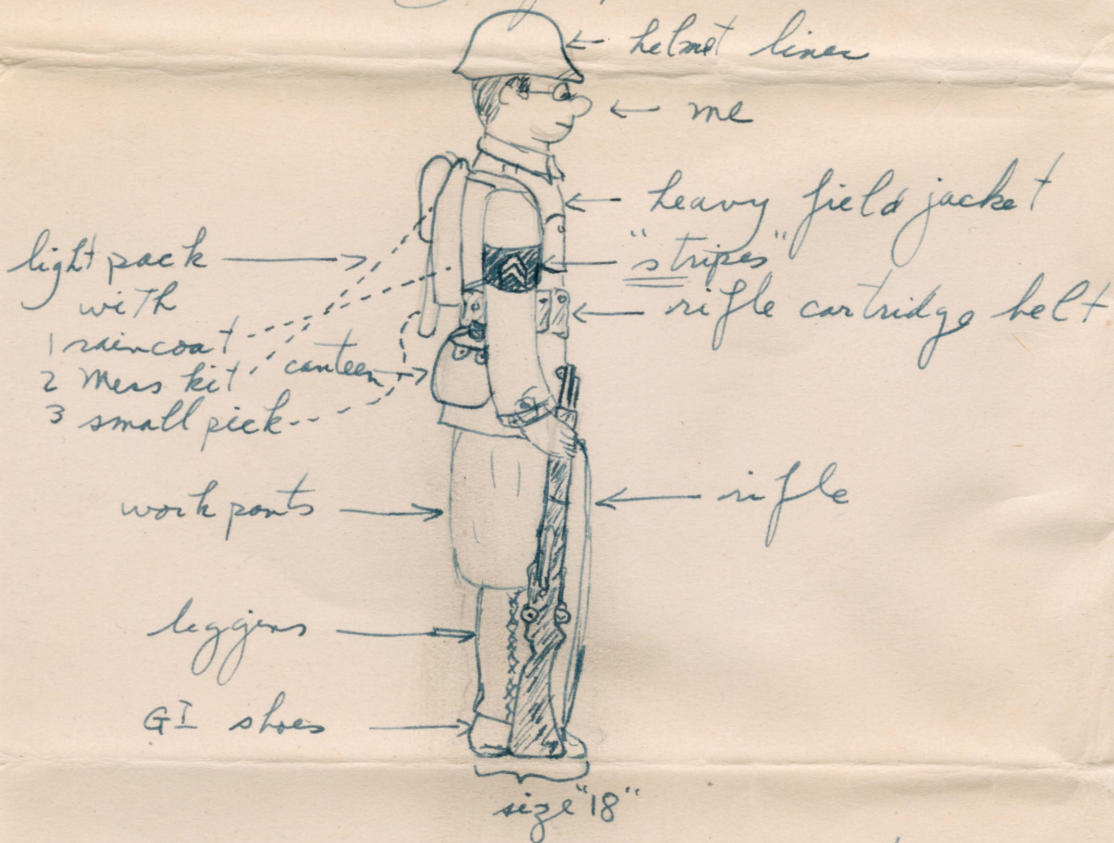 helmet liner
me
heavy field jacket
"stripes"
rifle cartridge belt
light pack
with
1 raincoat
2 Mess kit
3 small pick
canteen
work pants
rifle
leggins
GI shoes
size "18"